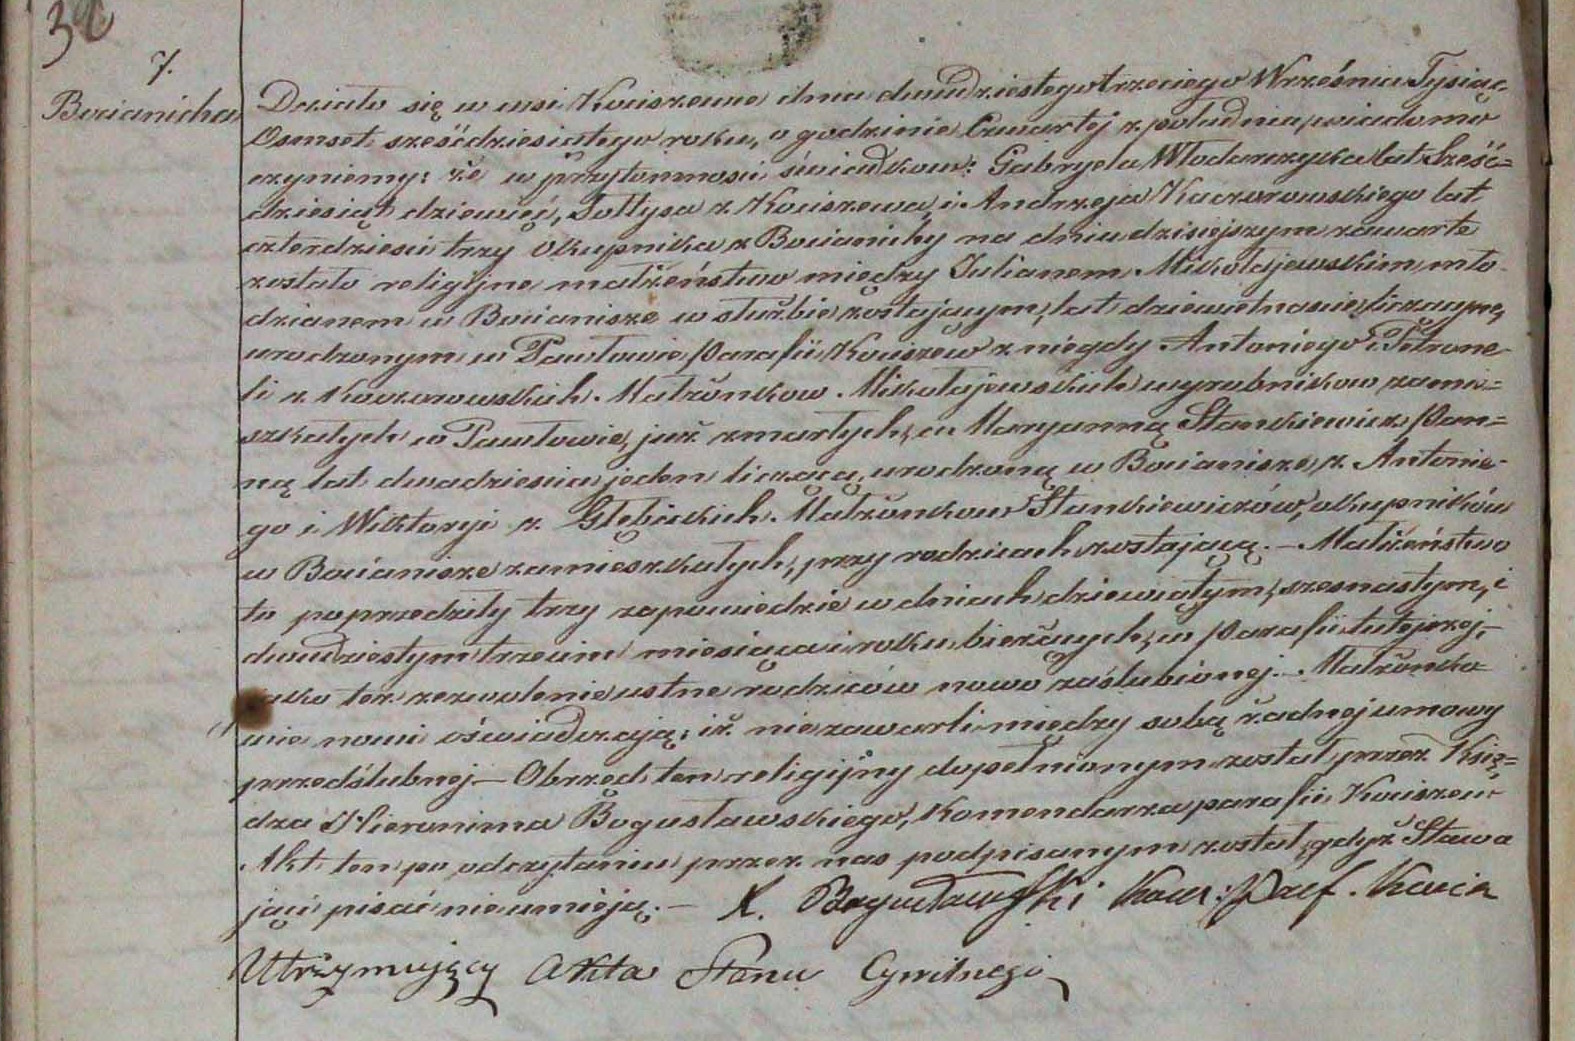 7.
Bocianicha
Działo się w wsi Kociszewie dnia dwudziestego trzeciego Września Tysiąc
Osmset sześćdziesiątego roku, o godzinie Czwartej z południa, wiadomo
czyniemy: że w przytomności świadków: Gabryela Włodarczyka lat Sześć=
dziesiąt dziewięć, Sołtysa z Kociszewa, i Andrzeja Kaczorowskiego lat
czterdzieści trzy Okupnika z Bocianichy na dniu dzisiejszym zawarte
zostało religijne małżeństwo między Julianem Mikołajewskim mło-
dzianem w Bocianisze w służbie zostającym, lat dziewiętnaście liczącym,
urodzonym w Pawłowie parafii Kociszew z niegdy Antoniego i Petrone-
li z Kaczorowskich Małżonków Mikołajewskich wyrobników zamie=
szkałych w Pawłowie, już zmarłych; a Maryanną Stankiewicz Pan=
ną lat dwadzieścia jeden liczącą, urodzoną w Bocianisze, z Antonie-
go i Wiktoryi z Głębickich Małżonków Stankiewiczów, okupników
w Bocianisze zamieszkałych, przy rodzicach zostającą. — Małżeństwo
to poprzedziły trzy zapowiedzie w dniach dziewiątym, szesnastym, i
dwudziestym trzecim miesiąca i roku bieżących, w Parafii tutejszej,—
jako też zezwolenie ustne rodziców nowo zaślubionej. — Małżonko
wie nowi oświadczają, iż nie zawarli między sobą żadnej umowy
przedślubnej — Obrzęd ten religijny dopełnionym został przez Xię=
dza Hieronima Bogusławskiego, Komendarza parafii Kociszew
Akt ten po odczytaniu przez nas podpisanym został, gdyż Stawa
jący pisać nie umieją. — X. Bogusławski Kom: Paf.
Utrzymujący Akta Stanu Cywilnego